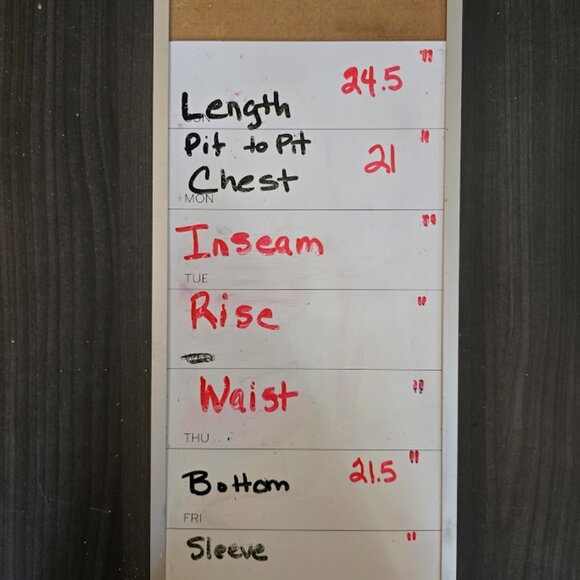 24.5 "
Length
SUN
Pit to Pit
21 "
Chest
MON
Inseam "
TUE
Rise "
Waist "
THU
Bottom 21.5 "
FRI
Sleeve "